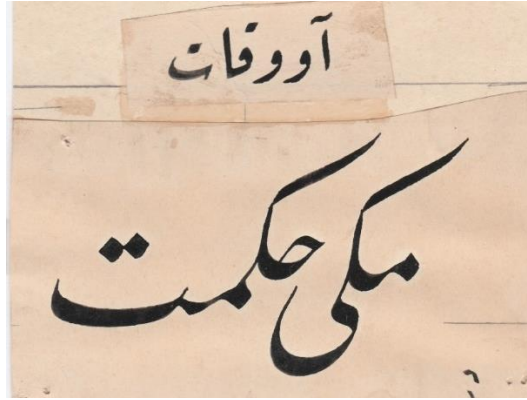 آووقات
مكی حكمت